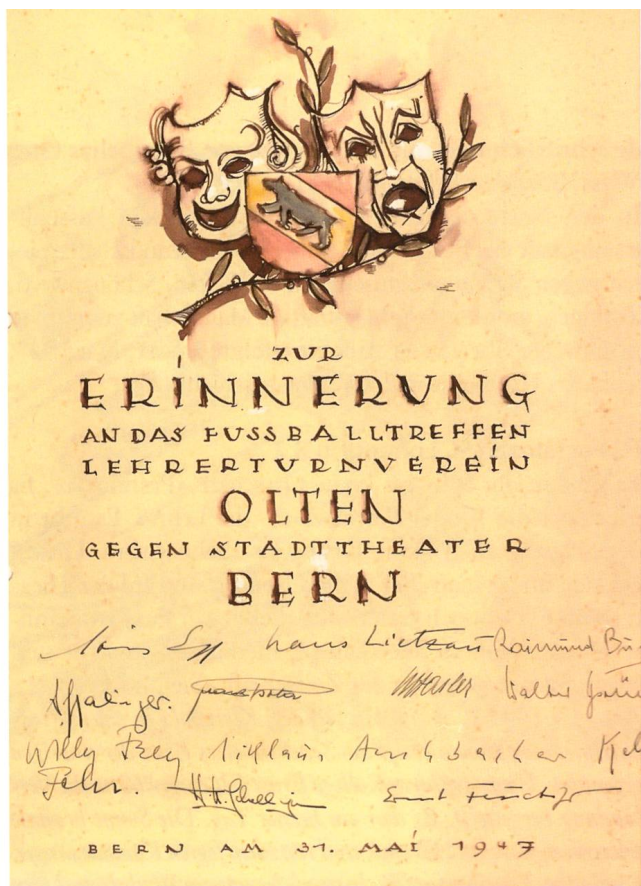 ZUR
ERINNERUNG
AN DAS FUSSBALLTREFFEN
LEHRERTURNVEREIN
OLTEN
GEGEN STADTTHEATER
BERN
Hans Lietzau Raimund
Walter
Willy Frey Niklaus Aeschbacher
Fehr.
Ernst
BERN AM 31. MAI 1947